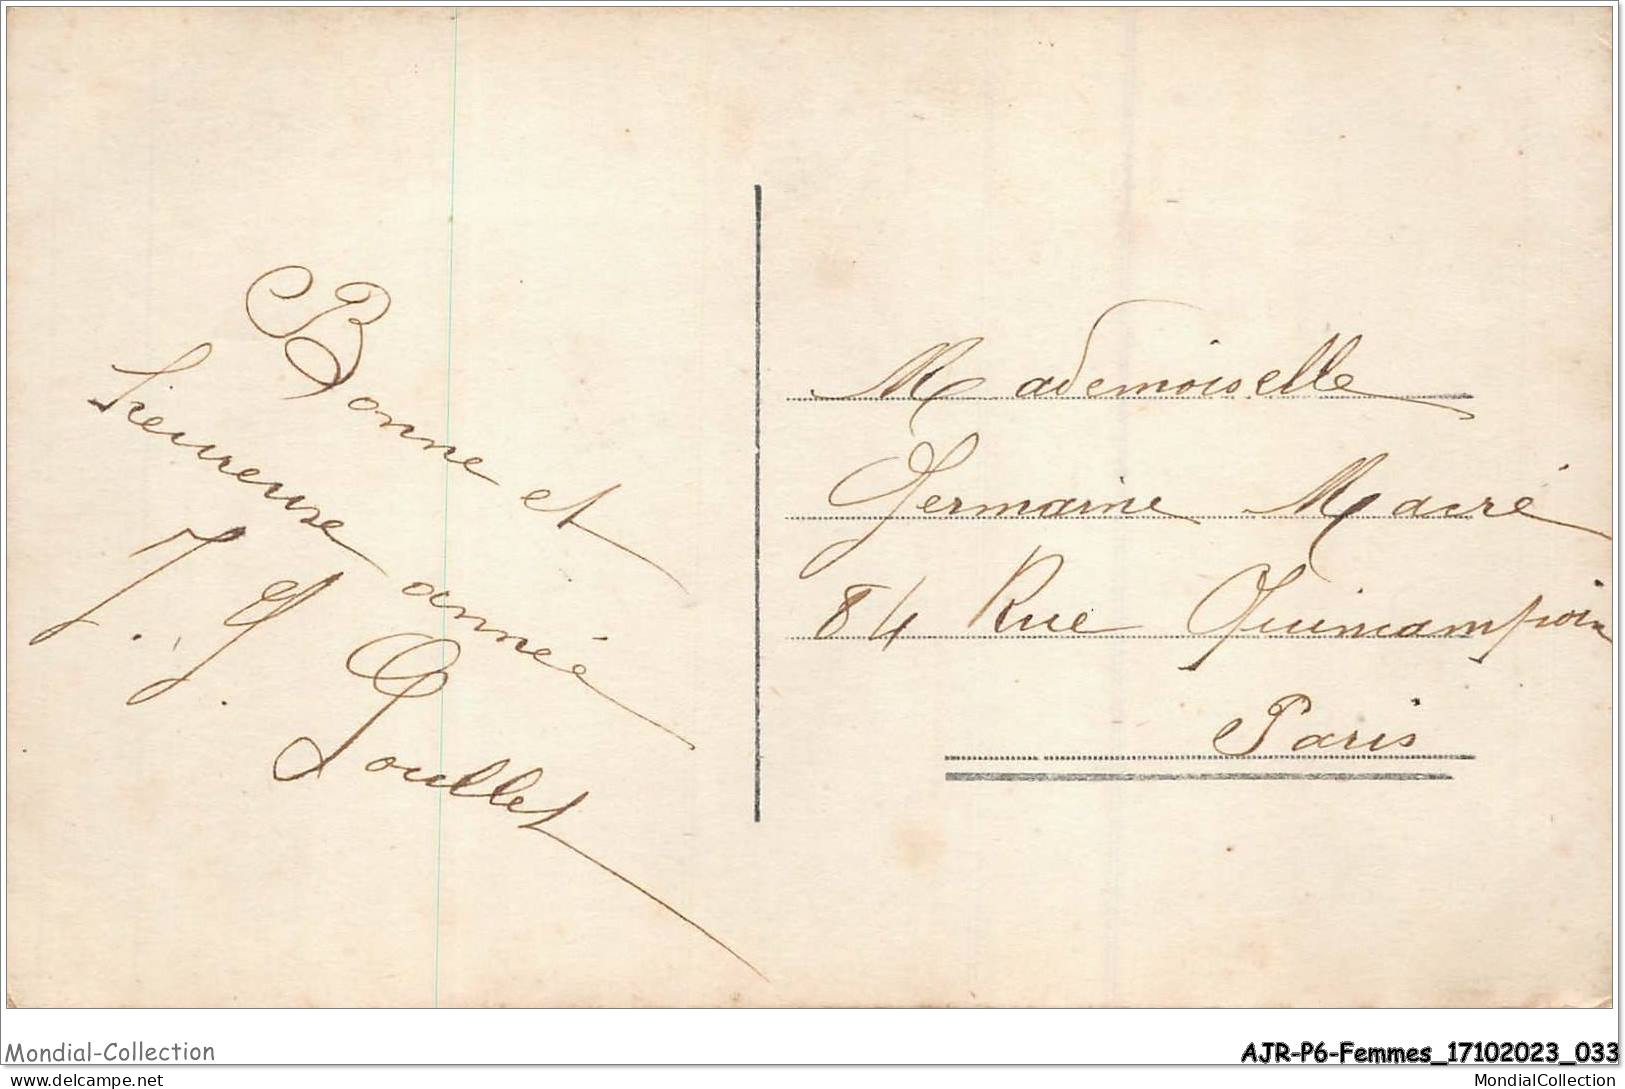 Bonne et
heureuse année
J. J. Goullet
Mademoiselle
Germaine Macré
84 Rue Quincampoix
Paris
Mondial-Collection
AJR-P6-Femmes_17102023_033
www.delcampe.net
MondialCollection